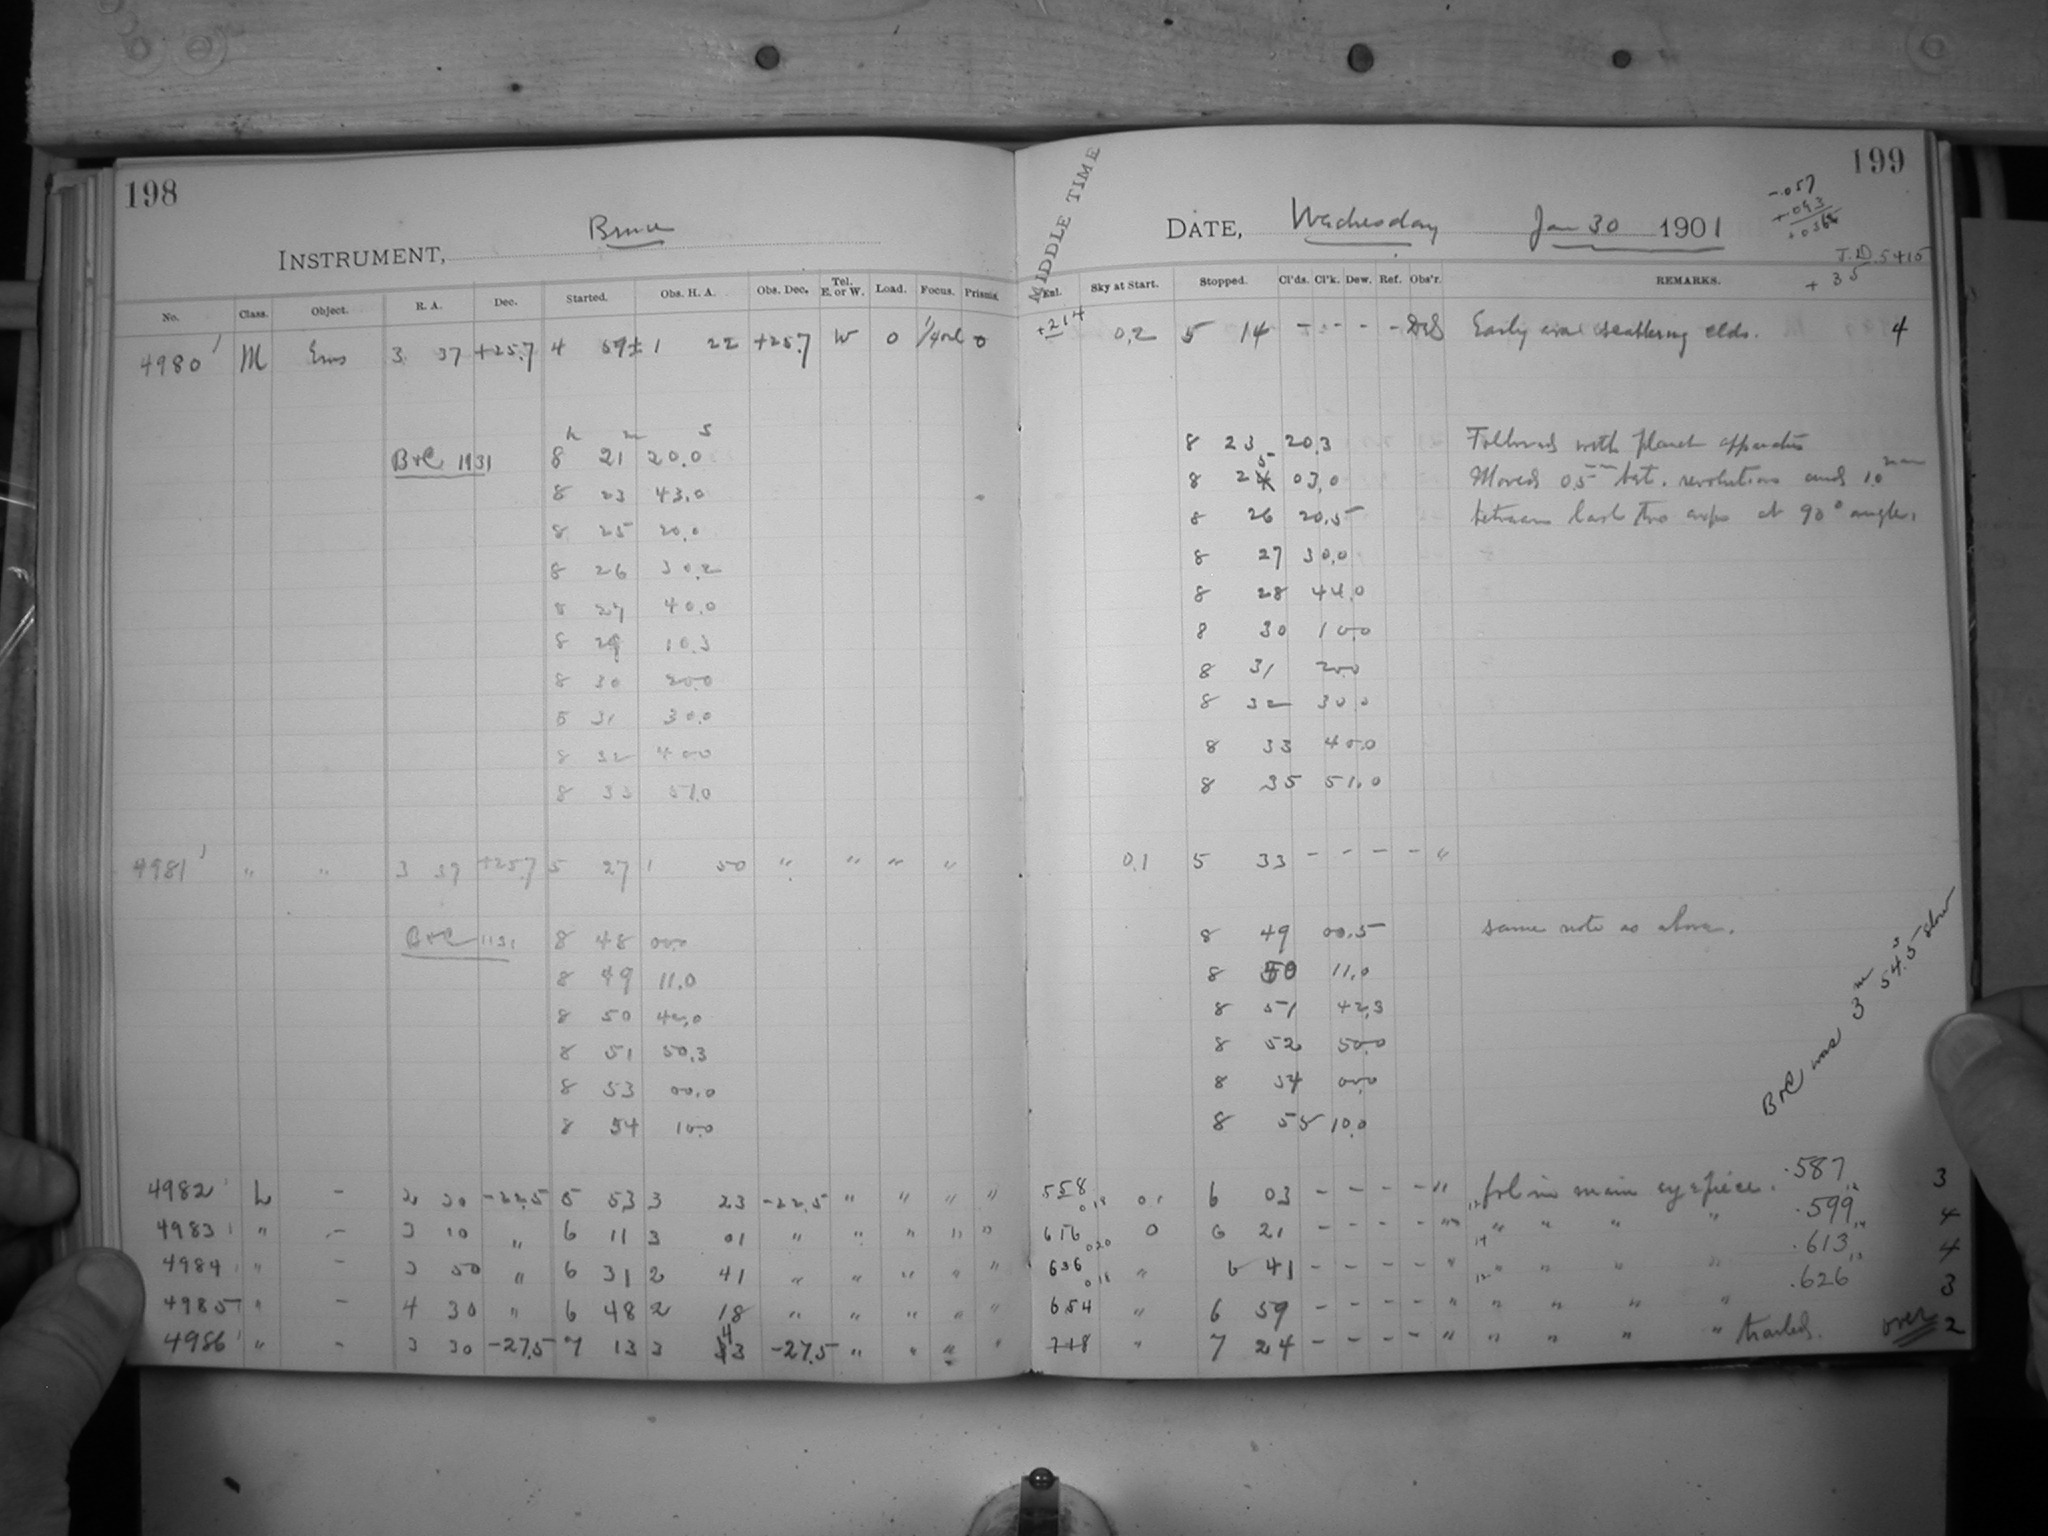 198
INSTRUMENT, Bruce
No. Class. Object. R. A. Dec. Started. Obs. H. A. Obs. Dec. Tel. E. or W. Load. Focus. Prisms.
4980 M Eros 3 37 +25.7 4 59± 1 22 +25.7 W 0 0
h m s
B&C 1131 8 21 20.0
8 23 43.0
8 25 20.0
8 26 30.2
8 27 40.0
8 29 10.3
8 30 20.0
8 31 30.0
8 32 40.0
8 33 51.0
4981 " " 3 37 +25.7 5 27 1 50 " " " "
B&C 1131 8 48 00.0
8 49 11.0
8 50 42.0
8 51 50.3
8 53 00.0
8 54 10.0
4982 L - 2 30 -22.5 5 53 3 23 -22.5 " " " "
4983 " - 3 10 " 6 11 3 01 " " " " "
4984 " - 3 50 " 6 31 2 41 " " " " "
4985 " - 4 30 " 6 48 2 18 " " " " "
4986 " - 3 30 -27.5 7 13 3 43 -27.5 " " " "
199
MIDDLE TIME
DATE, Wednesday Jan 30 1901
-.057
+.093
J.D. 5415
+ 35
Exl. Sky at Start. Stopped. Cl'ds. Cl'k. Dew. Ref. Obs'r. REMARKS.
+214 0.2 5 14 - - - - Early scattering clds. 4
8 23 20.3 Followed with planet apparatus
8 25 03.0 Moved 0.5 bet. revolutions and 1.0 mm
8 26 20.5 between last two exps at 90° angle.
8 27 30.0
8 28 44.0
8 30 10.0
8 31 20.0
8 32 30.0
8 33 40.0
8 35 51.0
0.1 5 33 - - - - "
8 49 00.5 same note as above.
8 50 11.0
8 51 42.3
8 52 50.0
8 54 00.0
8 55 10.0
B&C was 3m 54.5s slow
558 0.1 6 03 - - - - " fol in main eyepiece. .587 3
616 0 6 21 - - - - " " " " " .599 4
636 " 6 41 - - - - " " " " " .613 4
654 " 6 59 - - - - " " " " " .626 3
718 " 7 24 - - - - " " " " " trailed. over 2